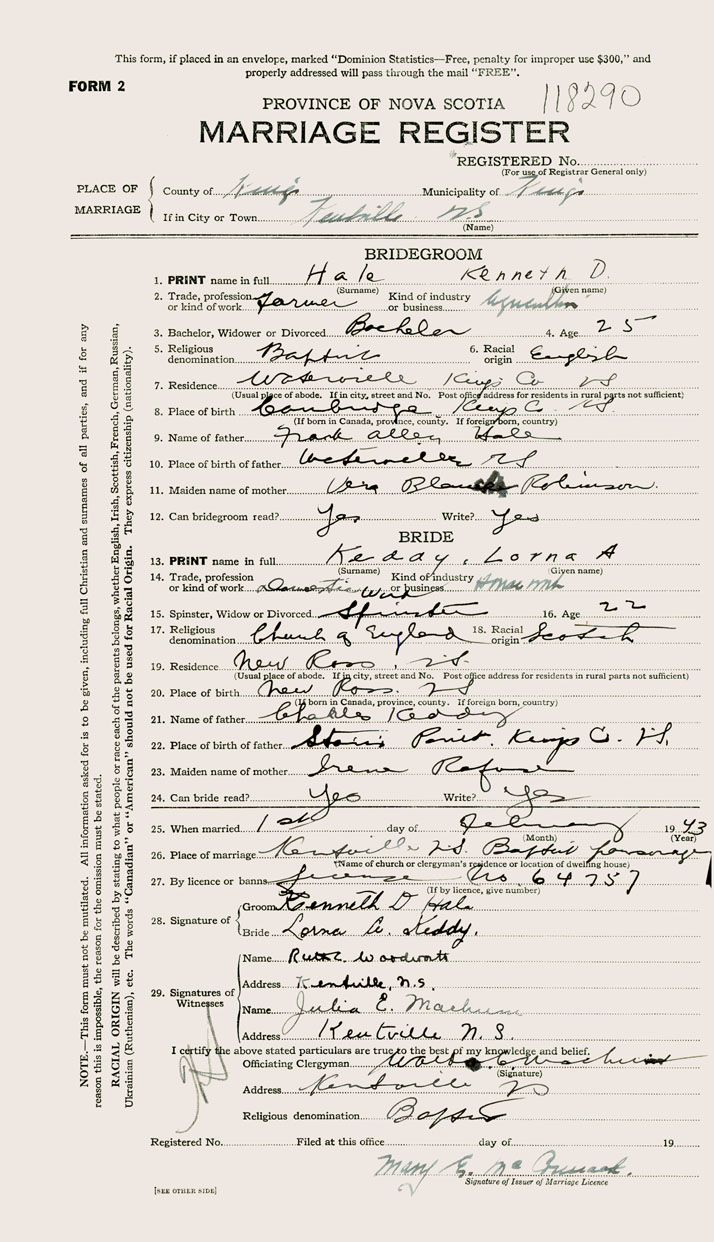 This form, if placed in an envelope, marked "Dominion Statistics—Free, penalty for improper use $300," and
properly addressed will pass through the mail "FREE".
FORM 2
118290
PROVINCE OF NOVA SCOTIA
MARRIAGE REGISTER
REGISTERED No.
(For use of Registrar General only)
PLACE OF MARRIAGE
County of Kings Municipality of Kings
If in City or Town Kentville NS
(Name)
BRIDEGROOM
1. PRINT name in full Hale Kenneth D.
(Surname) (Given name)
2. Trade, profession or kind of work Farmer Kind of industry or business Agriculture
3. Bachelor, Widower or Divorced Bachelor 4. Age 25
5. Religious denomination Baptist 6. Racial origin English
7. Residence Waterville Kings Co NS
(Usual place of abode. If in city, street and No. Post office address for residents in rural parts not sufficient)
8. Place of birth Cambridge Kings Co. NS
(If born in Canada, province, county. If foreign born, country)
9. Name of father Frank Allen Hale
10. Place of birth of father Waterville NS
11. Maiden name of mother Vera Blanche Robinson.
12. Can bridegroom read? Yes Write? Yes
BRIDE
13. PRINT name in full Keddy, Lorna A
(Surname) (Given name)
14. Trade, profession or kind of work Domestic Work Kind of industry or business Housework
15. Spinster, Widow or Divorced Spinster 16. Age 22
17. Religious denomination Church of England 18. Racial origin Scotch
19. Residence New Ross, NS.
(Usual place of abode. If in city, street and No. Post office address for residents in rural parts not sufficient)
20. Place of birth New Ross. NS
(If born in Canada, province, county. If foreign born, country)
21. Name of father Charles Keddy
22. Place of birth of father Point. Kings Co. NS,
23. Maiden name of mother Irene Refuse
24. Can bride read? Yes Write? Yes
25. When married 1st day of February 1943
(Month) (Year)
26. Place of marriage Kentville NS. Baptist parsonage
(Name of church or clergyman's residence or location of dwelling house)
27. By licence or banns license No. 64757
(If by licence, give number)
28. Signature of
Groom Kenneth D Hale
Bride Lorna A. Keddy.
29. Signatures of Witnesses
Name Ruth E. Woodworth
Address Kentville, N.S.
Name Julia E. Machum
Address Kentville N.S.
I certify the above stated particulars are true to the best of my knowledge and belief.
Officiating Clergyman
(Signature)
Address Kentville NS
Religious denomination Baptist
Registered No. Filed at this office day of 19
Mary E.
Signature of Issuer of Marriage Licence
[SEE OTHER SIDE]
NOTE.—This form must not be mutilated. All information asked for is to be given, including full Christian and surnames of all parties, and if for any
reason this is impossible, the reason for the omission must be stated.
RACIAL ORIGIN will be described by stating to what people or race each of the parents belongs, whether English, Irish, Scottish, French, German, Russian,
Ukrainian (Ruthenian), etc. The words "Canadian" or "American" should not be used for Racial Origin. They express citizenship (nationality).